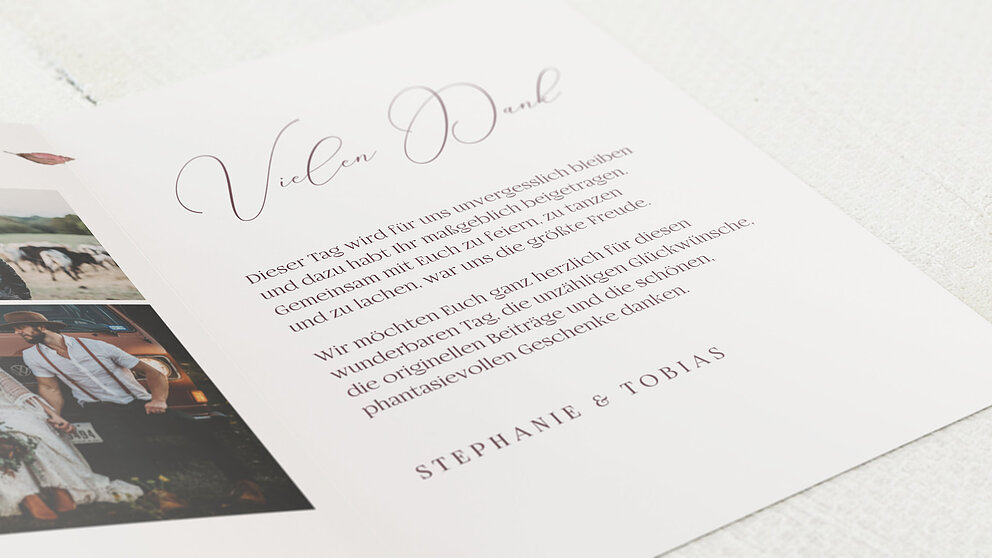 Vielen Dank
Dieser Tag wird für uns unvergesslich bleiben
und dazu habt Ihr maßgeblich beigetragen.
Gemeinsam mit Euch zu feiern, zu tanzen
und zu lachen, war uns die größte Freude.
Wir möchten Euch ganz herzlich für diesen
wunderbaren Tag, die unzähligen Glückwünsche,
die originellen Beiträge und die schönen,
phantasievollen Geschenke danken.
STEPHANIE & TOBIAS